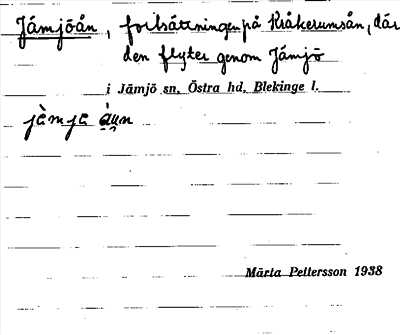 Jämjöån, fortsättningen på Kråkerumsån, där
den flyter genom Jämjö
i Jämjö sn, Östra hd, Blekinge l.
jèmje
Märta Pettersson 1938